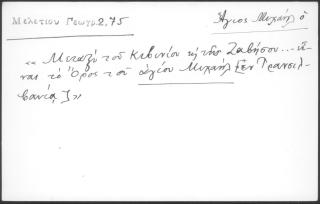 Μελετίου Γεωγρ. 2,75
Ἅγιος Μιχαήλ ὁ
«Μεταξὺ τοῦ Κιβινίου κ̀ τῆς Ζαβήσου... εἶ-
ναι τὸ Ὄρος τοῦ ἁγίου Μιχαήλ [ἐν Τρανσιλ-
βανίᾳ]»